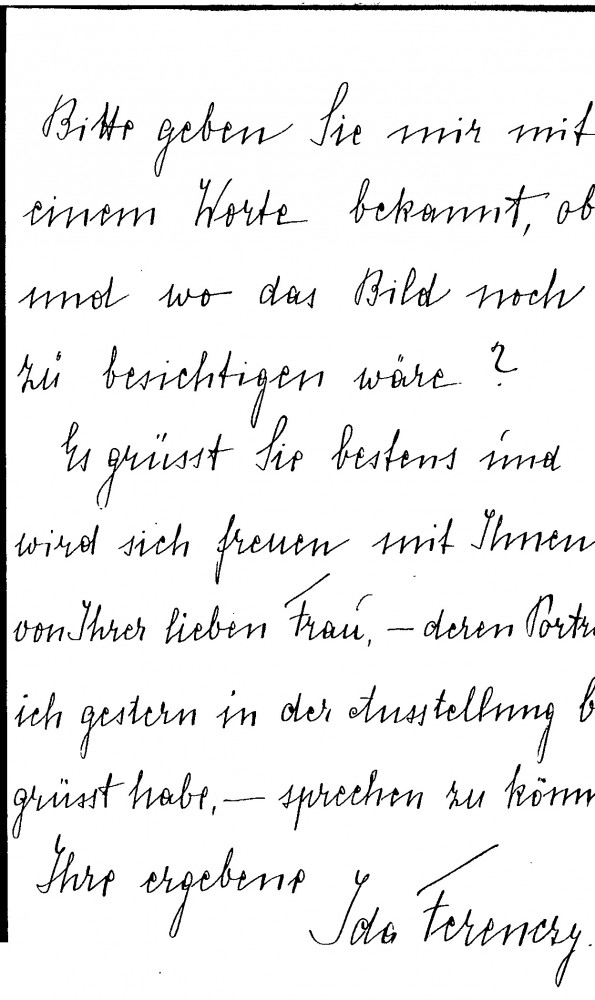 Bitte geben Sie mir mit
einem Worte bekannt, ob
und wo das Bild noch
zu besichtigen wäre?
Es grüsst Sie bestens und
wird sich freuen mit Ihnen
von Ihrer lieben Frau, — deren Portr
ich gestern in der Ausstellung b
grüsst habe, — sprechen zu könn
Ihre ergebene
Ida Ferenczy.